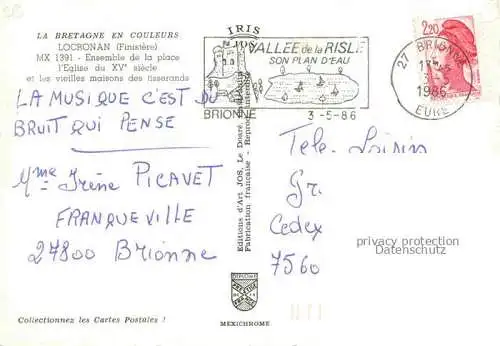 LA BRETAGNE EN COULEURS
LOCRONAN (Finistère)
MX 1391 - Ensemble de la place
l'Eglise du XVe siècle
et les vieilles maisons des tisserands
IRIS
JOS
VALLEE de la RISLE
SON PLAN D'EAU
BRIONNE
3-5-86
27 BRIONNE
1986
EURE
2,20
LA MUSIQUE C'EST DU
BRUIT QUI PENSE
Mme Irène PICAVET
FRANQUEVILLE
27800 Brionne
Editions d'Art JOS, Le Doaré
Fabrication française - Reproduction interdite
Tele Loisirs
Gr.
Cedex
7560
privacy protection
Datenschutz
Collectionnez les Cartes Postales !
MEXICHROME